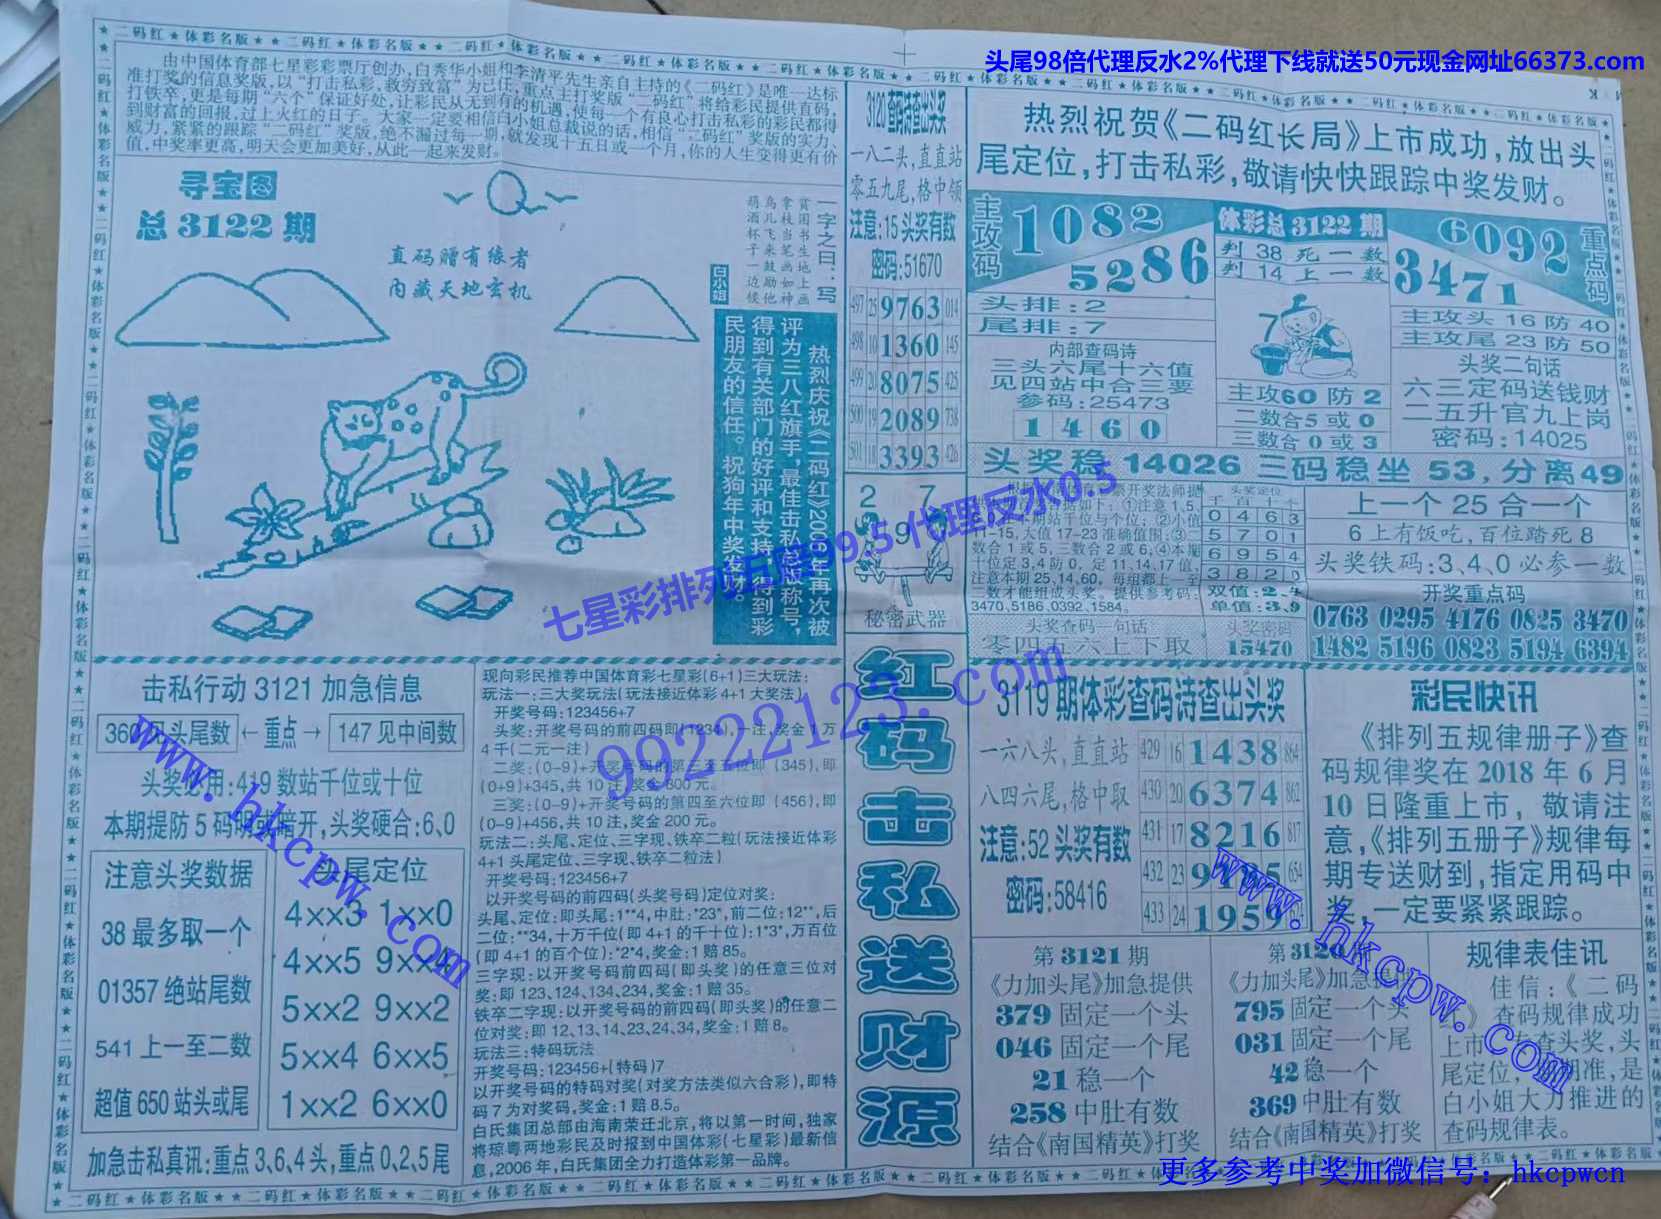 头尾98倍代理反水2%代理下线就送50元现金网址66373.com
二码红★体彩名版★★二码红★体彩名版
由中国体育部七星彩彩票厅创办，白秀华小姐和李清平先生亲自主持的《二码红》是唯一达标
准打奖的信息奖版，以“打击私彩，救穷致富”为己任，重点主打奖版“二码红”将给彩民提供直码，
打铁卒，更是每期“六个”保证好处，让彩民从无到有的机遇，使每一个有良心打击私彩的彩民都得
到财富的回报，过上火红的日子。大家一定要相信白小姐总裁说的话，相信“二码红”奖版的实力、
威力，紧紧的跟踪“二码红”奖版，绝不漏过每一期，就发现十五日或一个月，你的人生变得更有价
值，中奖率更高，明天会更加美好，从此一起来发财。
寻宝图
总3122期
直码赠有缘者
内藏天地玄机
一字之曰：写
贫困书生地上画
拿枝当笔画如神
鸟儿飞来鼓励他
葫酒杯子一边候
白小姐
热烈庆祝《二码红》2006年再次被
评为三八红旗手，最佳击私总版称号，
得到有关部门的好评和支持，得到彩
民朋友的信任。祝狗年中奖发财。
3120查码诗查出头奖
一八二头，直直站
零五九尾，格中领
注意:15头奖有数
密码:51670
497 25 9763 014
498 10 1360 145
499 20 8075 425
500 19 2089 738
501 18 3393 426
2 7
9
秘密武器
红码击私送财源
热烈祝贺《二码红长局》上市成功，放出头
尾定位，打击私彩，敬请快快跟踪中奖发财。
主攻码
1082
5286
体彩总3122期
判38死一数
判14上一数
6092
3471
重点码
头排:2
尾排:7
内部查码诗
三头六尾十六值
见四站中合三要
参码:25473
1 4 6 0
7
主攻60防2
二数合5或0
三数合0或3
主攻头16防40
主攻尾23防50
头奖二句话
六三定码送钱财
二五升官九上岗
密码:14025
头奖稳14026三码稳坐53，分离49
票开奖法师提
据如下:①注意1,5
本期站千位与个位;②小值
11-15,大值17-23准确值围;③二
数合1或5,三数合2或6,④本期
十位定3,4防0,定11,14,17值,
注意本期25,14,60,每组都上一至
二数才能组成头奖。提供参考码:
3470,5186,0392,1584。
头奖定位
千 百 十 个
0 4 6 3
5 7 0 1
6 9 5 4
3 8 2 0
双值:2、4
单值:3、9
头奖查码一句话
零四五六上下取
头奖密码
15470
上一个25合一个
6上有饭吃，百位踏死8
头奖铁码:3、4、0必参一数
开奖重点码
0763 0295 4176 0825 3470
1482 5196 0823 5194 6394
七星彩排列五赔99.5 代理反水0.5
99222123.com
击私行动3121加急信息
360见头尾数←重点→147见中间数
头奖必用:419数站千位或十位
本期提防5码明藏暗开，头奖硬合:6、0
注意头奖数据
38最多取一个
01357绝站尾数
541上一至二数
超值650站头或尾
头尾定位
4××3 1××0
4××5 9××4
5××2 9××2
5××4 6××5
1××2 6××0
加急击私真讯:重点3、6、4头，重点0、2、5尾
现向彩民推荐中国体育彩七星彩(6+1)三大玩法:
玩法一:三大奖玩法(玩法接近体彩4+1大奖法)
开奖号码:123456+7
头奖:开奖号码的前四码即(1234),一注,奖金1万
4千(二元一注)
二奖:(0–9)+开奖号码的第三至五位即(345),即
(0+9)+345,共10注,奖金300元。
三奖:(0–9)+开奖号码的第四至六位即(456),即
(0–9)+456,共10注,奖金200元。
玩法二:头尾、定位、三字现、铁卒二粒(玩法接近体彩
4+1头尾定位、三字现、铁卒二粒法)
开奖号码:123456+7
以开奖号码的前四码(头奖号码)定位对奖:
头尾、定位:即头尾:1**4,中肚:*23*,前二位:12**,后
二位:**34,十万千位(即4+1的千十位):1*3*,万百位
(即4+1的百个位):*2*4,奖金:1赔85。
三字现:以开奖号码前四码(即头奖)的任意三位对
奖:即123、124、134、234,奖金:1赔35。
铁卒二字现:以开奖号码的前四码(即头奖)的任意二
位对奖:即12、13、14、23、24、34,奖金:1赔8。
玩法三:特码玩法
开奖号码:123456+(特码)7
以开奖号码的特码对奖(对奖方法类似六合彩),即特
码7为对奖码,奖金:1赔8.5。
白氏集团总部由海南荣迁北京,将以第一时间,独家
将琼粤两地彩民及时报到中国体彩(七星彩)最新信
息,2006年,白氏集团全力打造体彩第一品牌。
3119期体彩查码诗查出头奖
一六八头，直直站
八四六尾，格中取
注意:52头奖有数
密码:58416
429 16 1438 864
430 20 6374 862
431 17 8216 817
432 23 654
433 24 1959
彩民快讯
《排列五规律册子》查
码规律奖在2018年6月
10日隆重上市，敬请注
意，《排列五册子》规律每
期专送财到，指定用码中
奖，一定要紧紧跟踪。
第3121期
《力加头尾》加急提供
379固定一个头
046固定一个尾
21稳一个
258中肚有数
结合《南国精英》打奖
第3120期
《力加头尾》加急提供
795固定一个头
031固定一个尾
42稳一个
369中肚有数
结合《南国精英》打奖
规律表佳讯
佳信:《二码
》查码规律成功
上市，查头奖，头
尾定位，期期准，是
白小姐大力推进的
查码规律表。
www.hkcpw.com
www.hkcpw.com
更多参考中奖加微信号：hkcpwcn